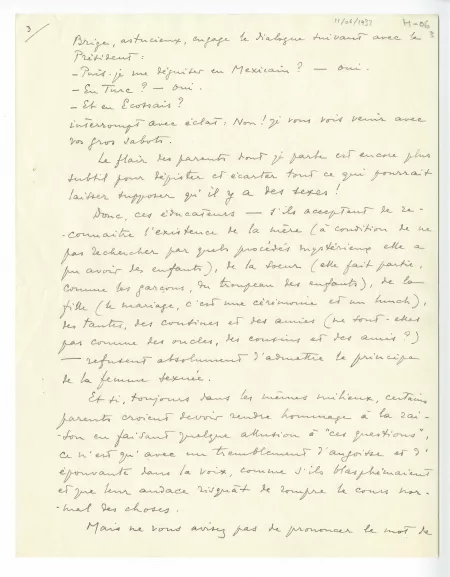 3/
11/06/1937 M-06
3
Brige, astucieux, engage le dialogue suivant avec le
Président :
- Puis-je me déguiser en Mexicain ? — oui.
- En Turc ? — oui.
- Et en Ecossais ?
interrompt avec éclat : Non ! je vous vois venir avec
vos gros sabots.
Le flair des parents dont je parle est encore plus
subtil pour dépister et écarter tout ce qui pourrait
laisser supposer qu'il y a des sexes !
Donc, ces éducateurs — s'ils acceptent de re-
-connaître l'existence de la mère (à condition de ne
pas rechercher par quels procédés mystérieux elle a
pu avoir des enfants), de la soeur (elle fait partie,
comme les garçons, du troupeau des enfants), de la
fille (le mariage, c'est une cérémonie et un lunch),
des tantes, des cousines et des amies (ne sont-elles
pas comme des oncles, des cousins et des amis ?)
— refusent absolument d'admettre le principe
de la femme sexuée.
Et si, toujours dans les mêmes milieux, certains
parents croient devoir rendre hommage à la rai-
-son en faisant quelque allusion à "ces questions",
ce n'est qu'avec un tremblement d'angoisse et d'
épouvante dans la voix, comme s'ils blasphémaient
et que leur audace risquât de rompre le cours nor-
-mal des choses.
Mais ne vous avisez pas de prononcer le mot de